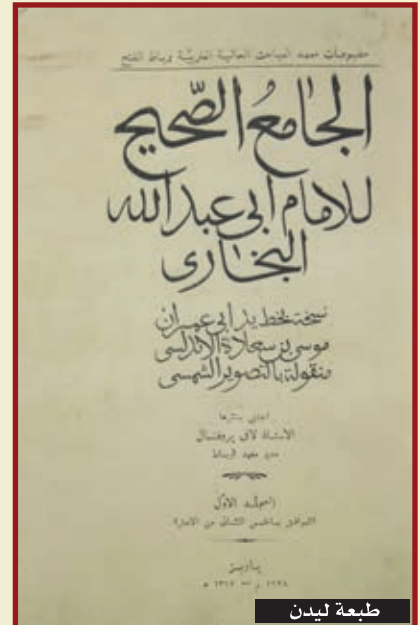 مطبوعات معهد المباحث العالية المغربية برباط الفتح
الجامع الصحيح
للامام ابى عبد الله
البخارى
نسخة بخط يد ابى عمران
موسى بن سعادة الاندلسى
منقولة بالتصوير الشمسى
اعتنى بنشرها
الاستاذ لاوى پروفنسال
مدير معهد الرباط
المجلد الاول
باريز
١٩٢٨ م — ١٣٤٧ ه
طبعة ليدن